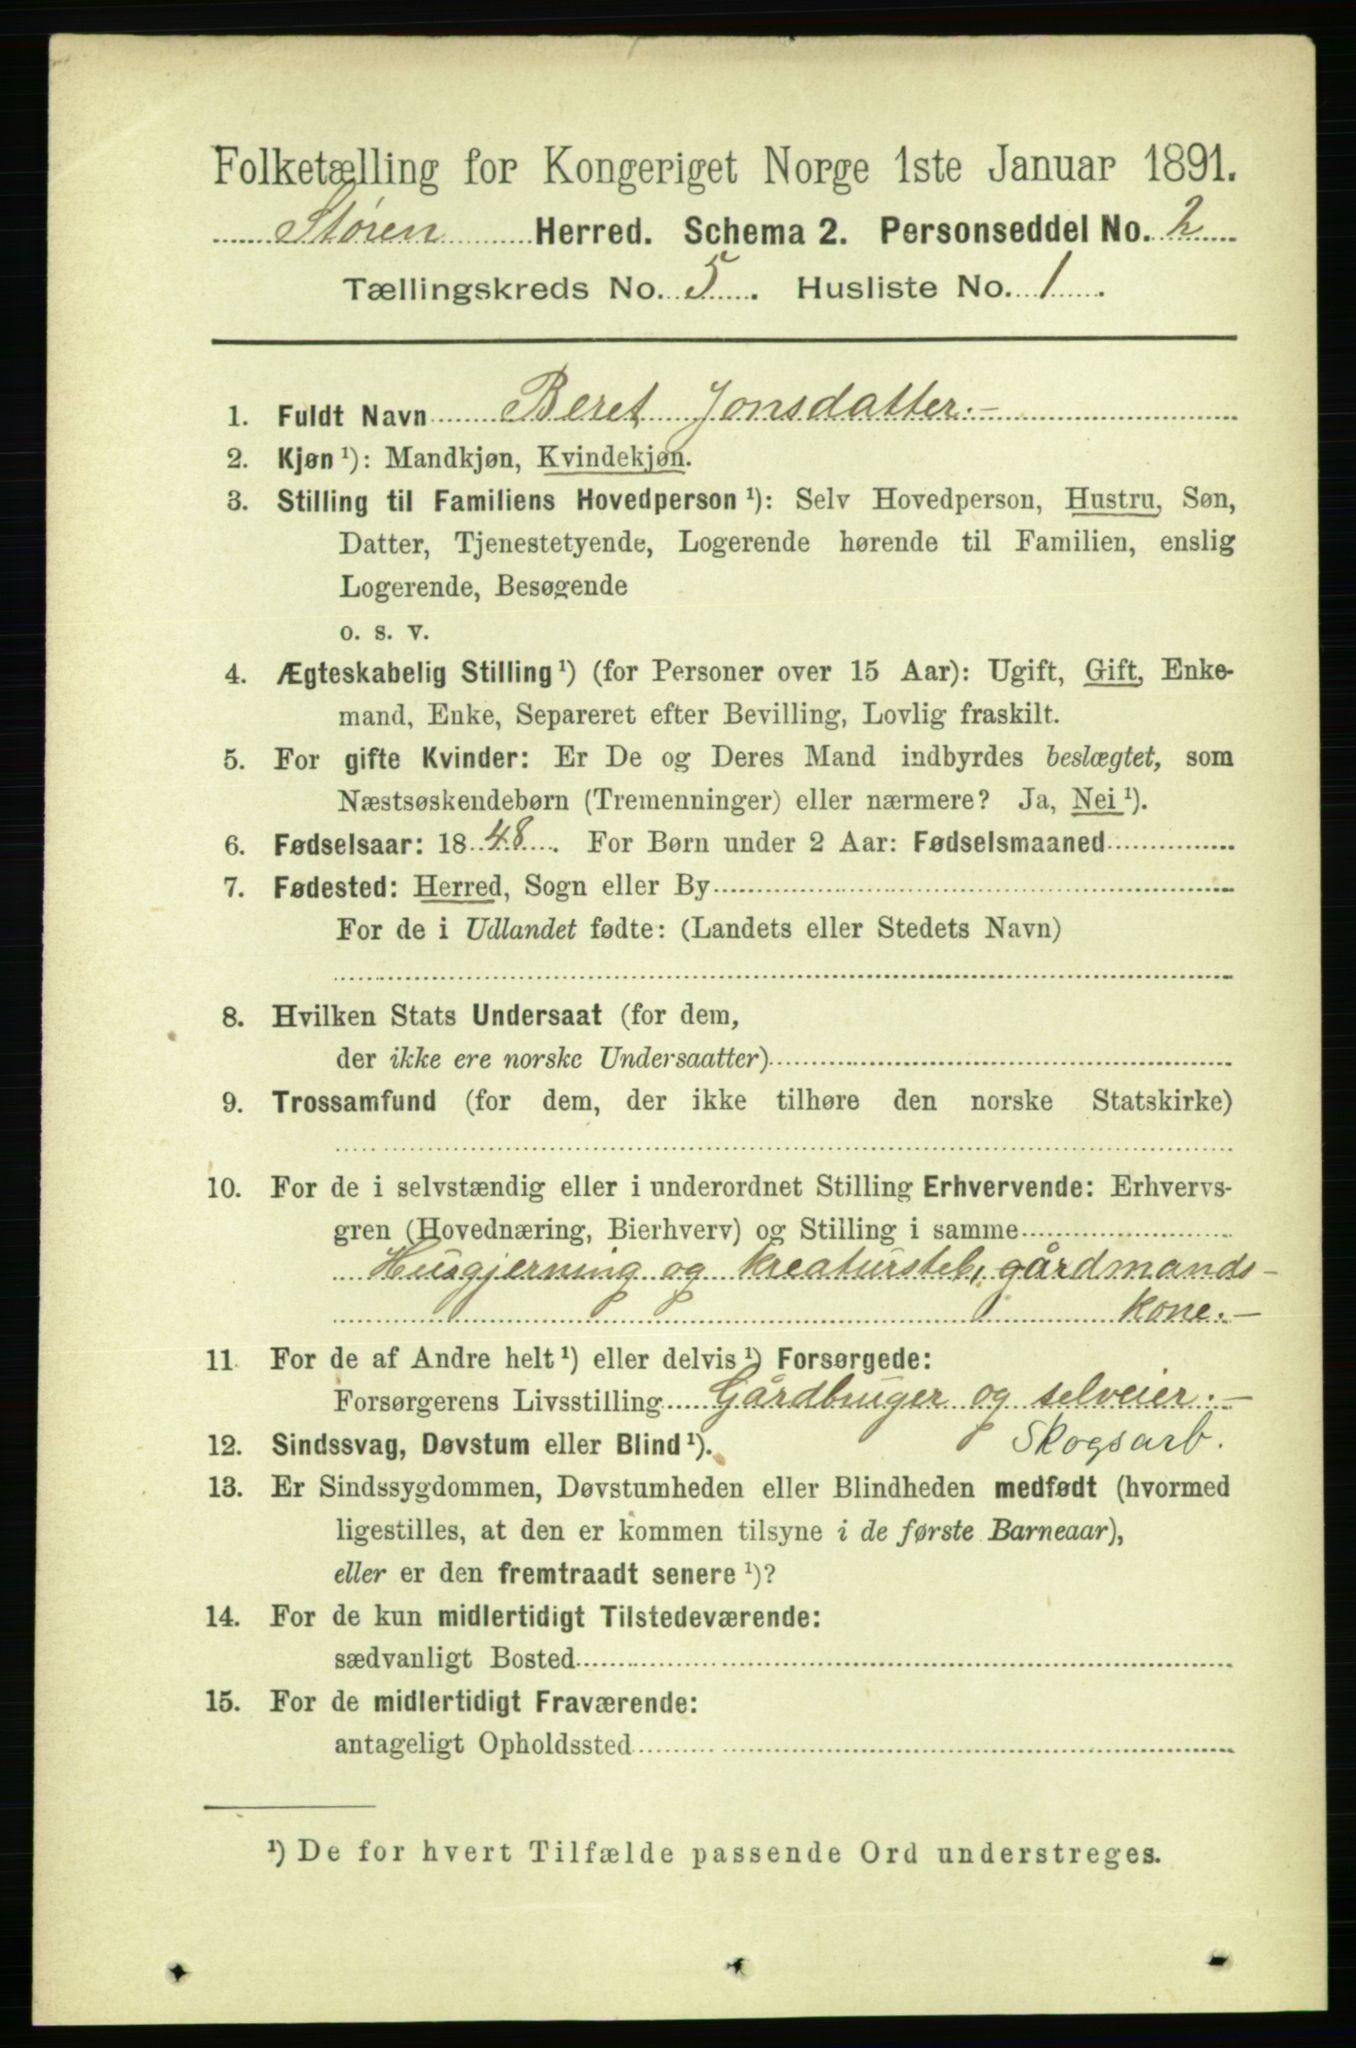 Folketælling for Kongeriget Norge 1ste Januar 1891.
Støren Herred. Schema 2. Personseddel No. 2
Tællingskreds No. 5. Husliste No. 1.
1. Fuldt Navn Beret Jonsdatter.-
2. Kjøn ¹): Mandkjøn, Kvindekjøn.
3. Stilling til Familiens Hovedperson ¹): Selv Hovedperson, Hustru, Søn,
Datter, Tjenestetyende, Logerende hørende til Familien, enslig
Logerende, Besøgende
o. s. v.
4. Ægteskabelig Stilling ¹) (for Personer over 15 Aar): Ugift, Gift, Enke-
mand, Enke, Separeret efter Bevilling, Lovlig fraskilt.
5. For gifte Kvinder: Er De og Deres Mand indbyrdes beslægtet, som
Næstsøskendebørn (Tremenninger) eller nærmere? Ja, Nei ¹).
6. Fødselsaar: 1848. For Børn under 2 Aar: Fødselsmaaned
7. Fødested: Herred, Sogn eller By
For de i Udlandet fødte: (Landets eller Stedets Navn)
8. Hvilken Stats Undersaat (for dem,
der ikke ere norske Undersaatter)
9. Trossamfund (for dem, der ikke tilhøre den norske Statskirke)
10. For de i selvstændig eller i underordnet Stilling Erhvervende: Erhvervs-
gren (Hovednæring, Bierhverv) og Stilling i samme
Husgjerning og kreaturstel, gårdmands-
kone.-
11 For de af Andre helt ¹) eller delvis ¹) Forsørgede:
Forsørgerens Livsstilling Gårdbruger og selveier.-
12. Sindssvag, Døvstum eller Blind ¹). Skogsarb.
13. Er Sindssygdommen, Døvstumheden eller Blindheden medfødt (hvormed
ligestilles, at den er kommen tilsyne i de første Barneaar),
eller er den fremtraadt senere ¹)?
14. For de kun midlertidigt Tilstedeværende:
sædvanligt Bosted
15. For de midlertidigt Fraværende:
antageligt Opholdssted
¹) De for hvert Tilfælde passende Ord understreges.